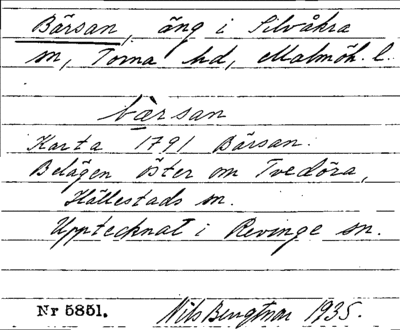 Bärsan, äng i Silvåkra
sn, Torna hd, Malmöh. l.
bàrsan
Karta 1791 Bärsan.
Belägen öster om Tvedöra,
Hällestads sn.
Upptecknat i Revinge sn.
Nr 5851. Nils Bengtson 1935.